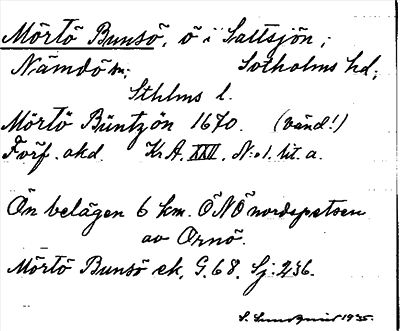 Mörtö Bunsö, ö i Saltsjön,
Nämdö sn; Sotholms hd;
Sthlms l.
Mörtö Büntzön 1670. (vänd!)
Förf. akd. Kr.A. XXII, N:o 1. lit. a.
Ön belägen 6 km. ÖNÖ nordspetsen
av Ornö.
Mörtö Bunsö ek, G. 68, Sj: 236.
S. 1935